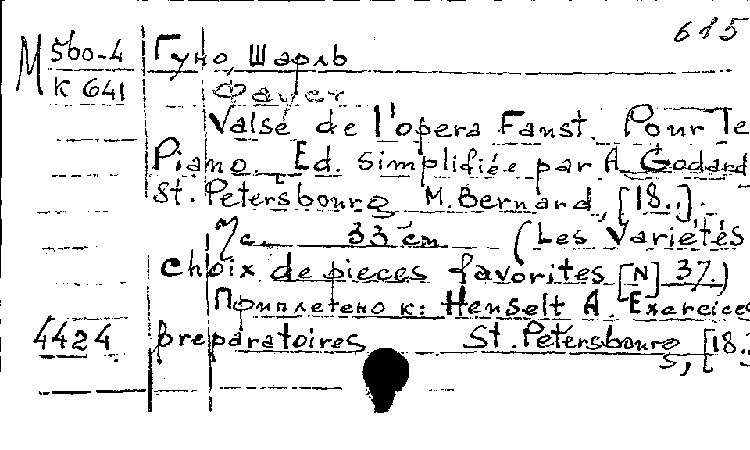 615
М 560-4 Гуно, Шарль
К 641 Фауст
Valse de l'opera Faust. Pour le
Piano. Ed. simplifiée par A. Godard
St. Petersbourg M. Bernard, [18..].
7 с. 33 cm (Les Varietés
choix de pieces favorites [N] 37.)
Приплетено к: Henselt A. Exercices
4424 preparatoires St. Petersbourg, [18..